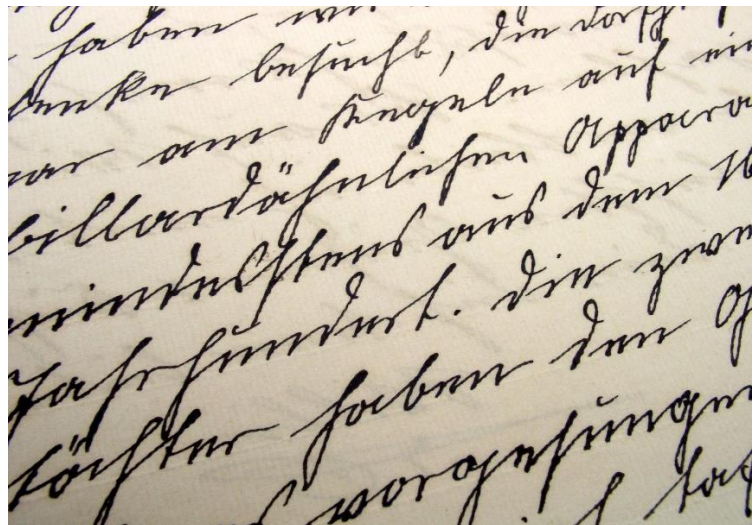 haben wi
besucht, die dort
war am Kegeln auf ein
billardähnlichen Appara
mindestens aus dem 16
Jahrhundert. Die zwe
töchter haben den G
vorgesungen